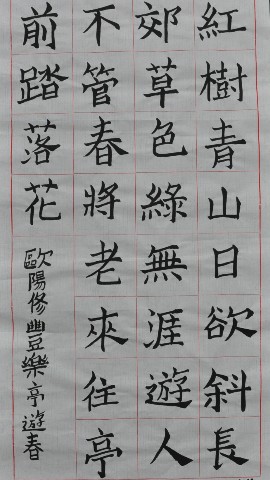 紅樹青山日欲斜長
郊草色綠無涯遊人
不管春將老來往亭
前踏落花
歐陽修豐樂亭遊春